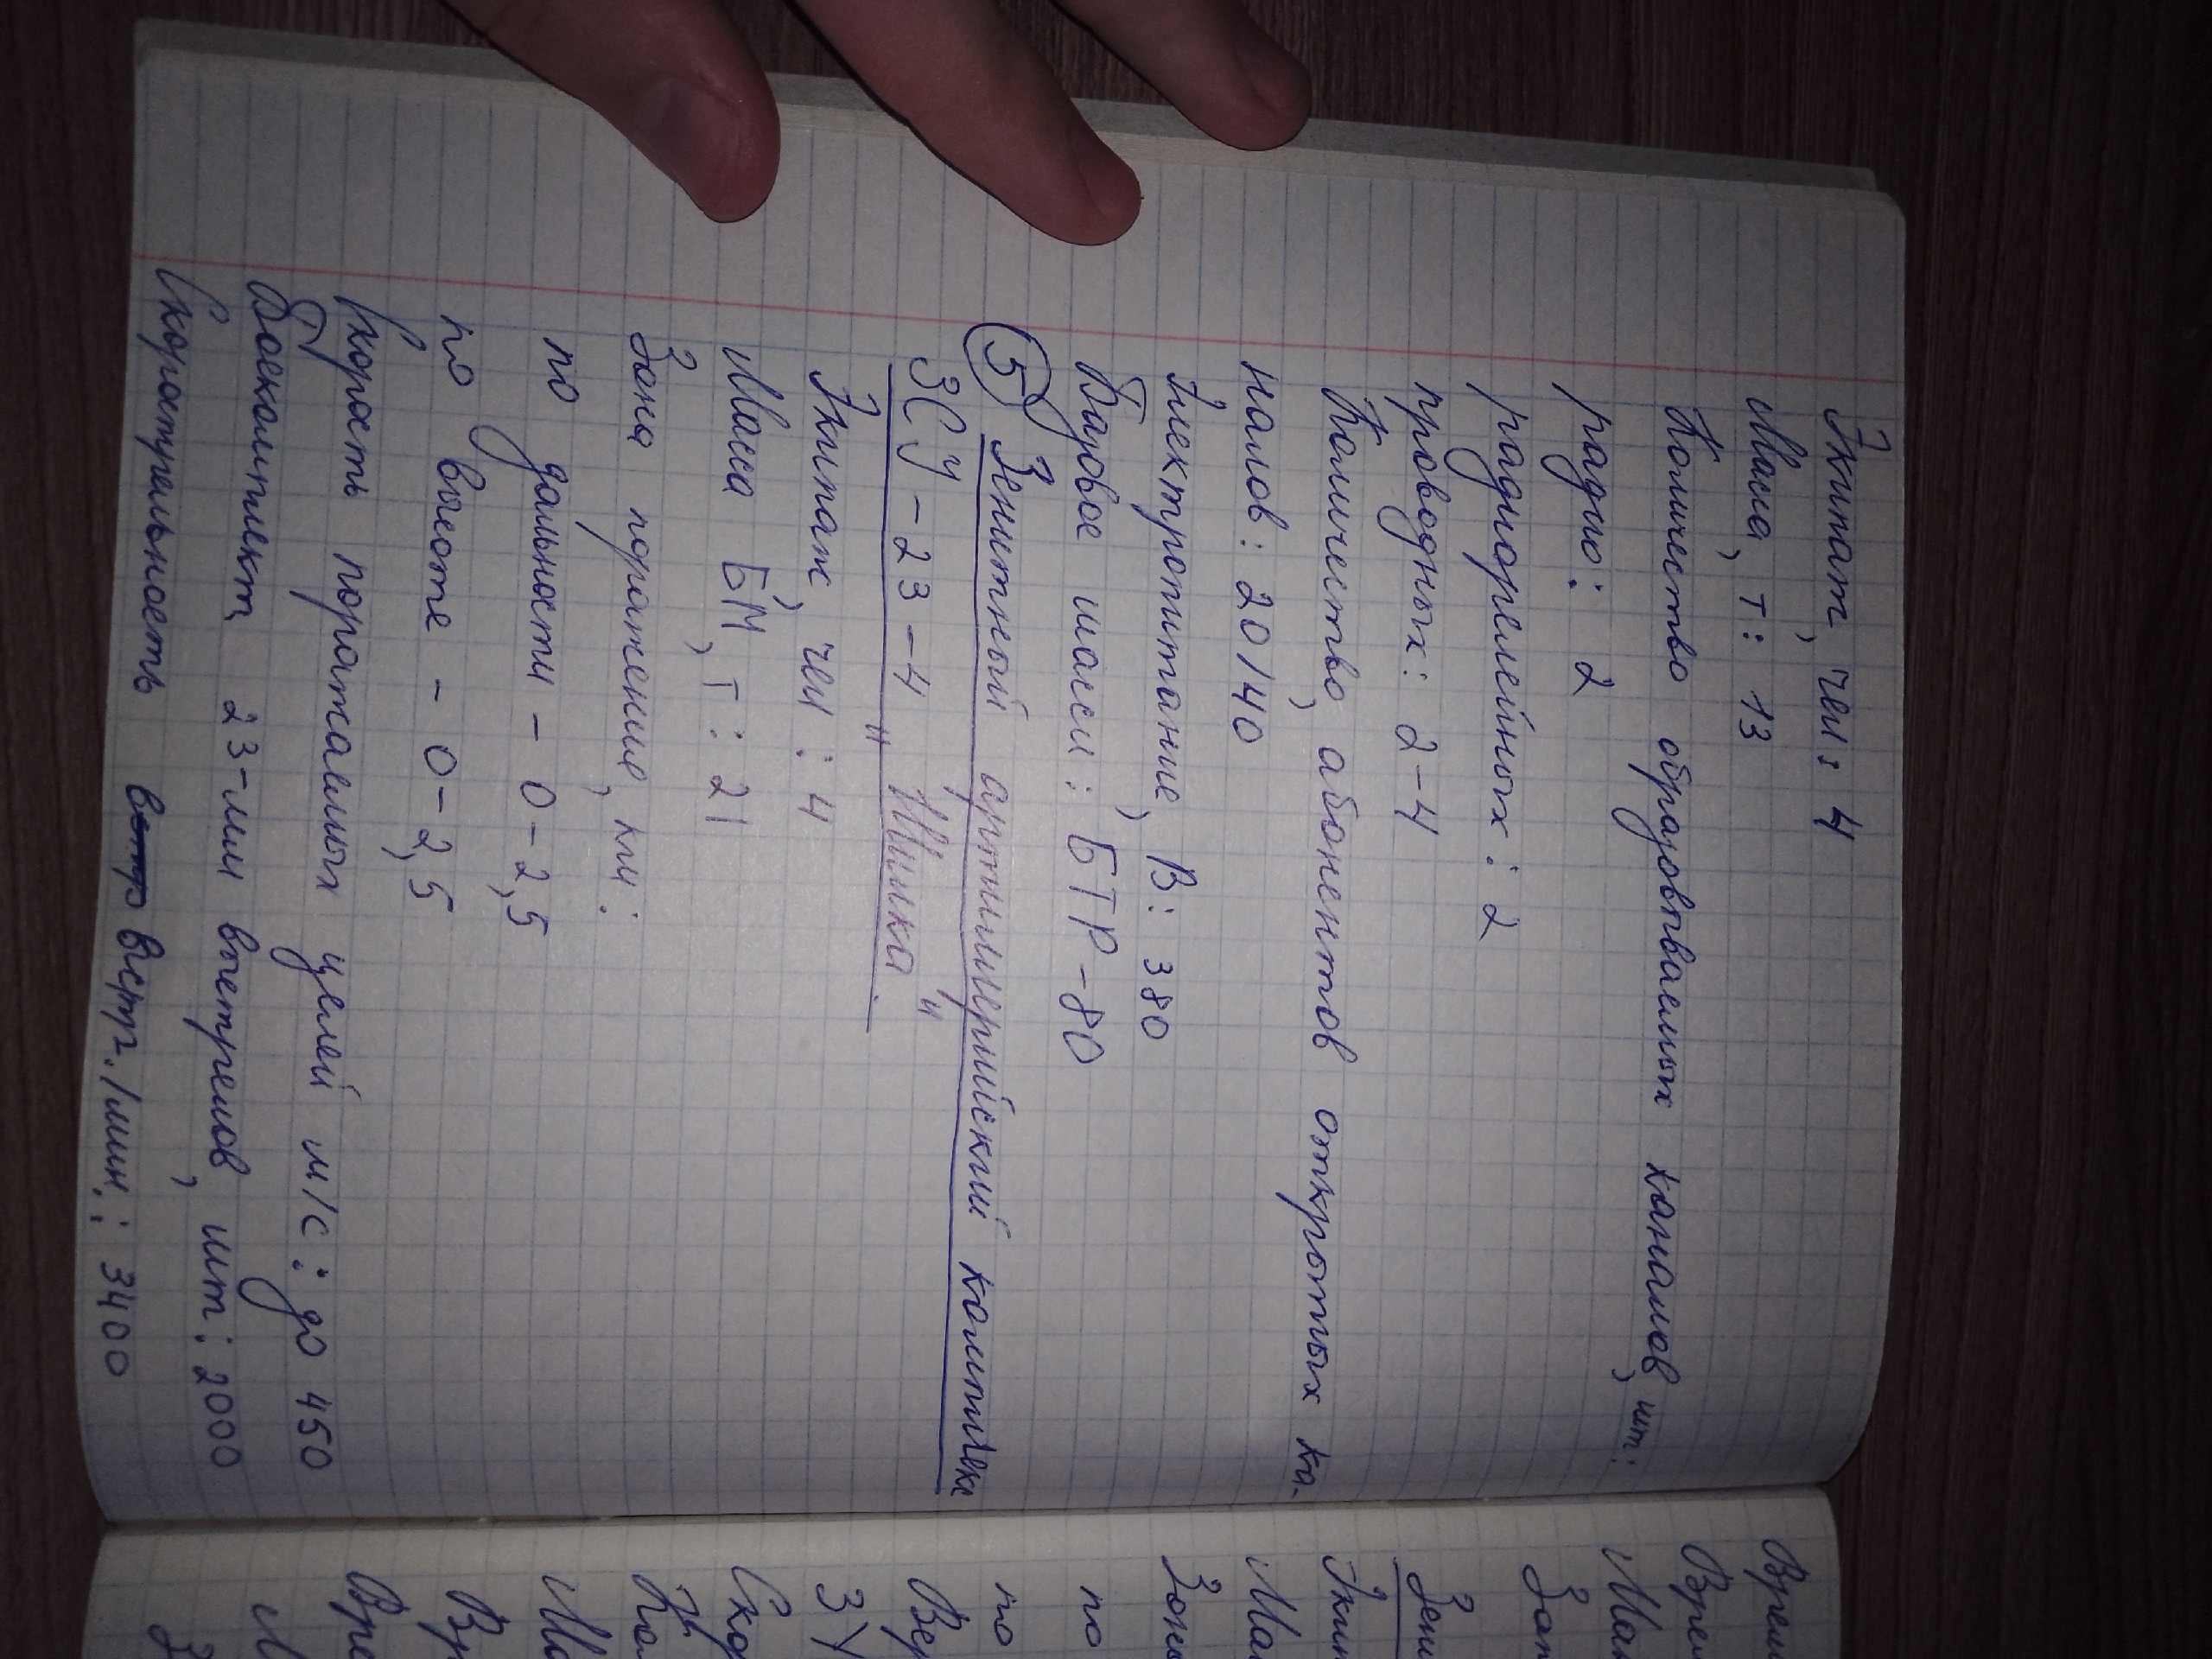 Экипаж, чел: 4
Масса, т: 13
Количество образовываемых каналов, шт:
радио: 2
радиорелейных: 2
проводных: 2-4
Количество, абонентов открытых ка-
налов: 20/40
Электропитание, В: 380
Базовое шасси: БТР-80
5 Зенитный артиллерийский комплекс
ЗСУ-23-4 „Шилка".
Экипаж, чел: 4
Масса БМ, т: 21
Зона поражения, км:
по дальности - 0-2,5
по высоте - 0-2,5
Скорость поражаемых целей м/с: до 450
Боекомплект 23-мм выстрелов, шт: 2000
Скорострельность выстр./мин.: 3400
по
по